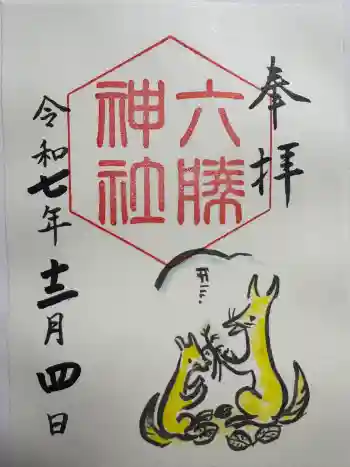 奉拝
六勝
神社
令和七年十二月四日